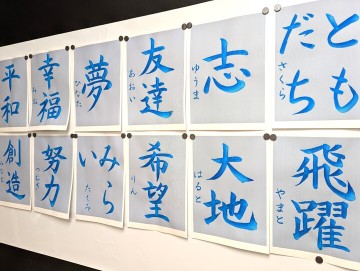 とも
だち
さくら
志
ゆうま
友達
あおい
夢
ひなた
幸福
平和
飛躍
やまと
大地
はると
希望
りん
みら
い
努力
創造